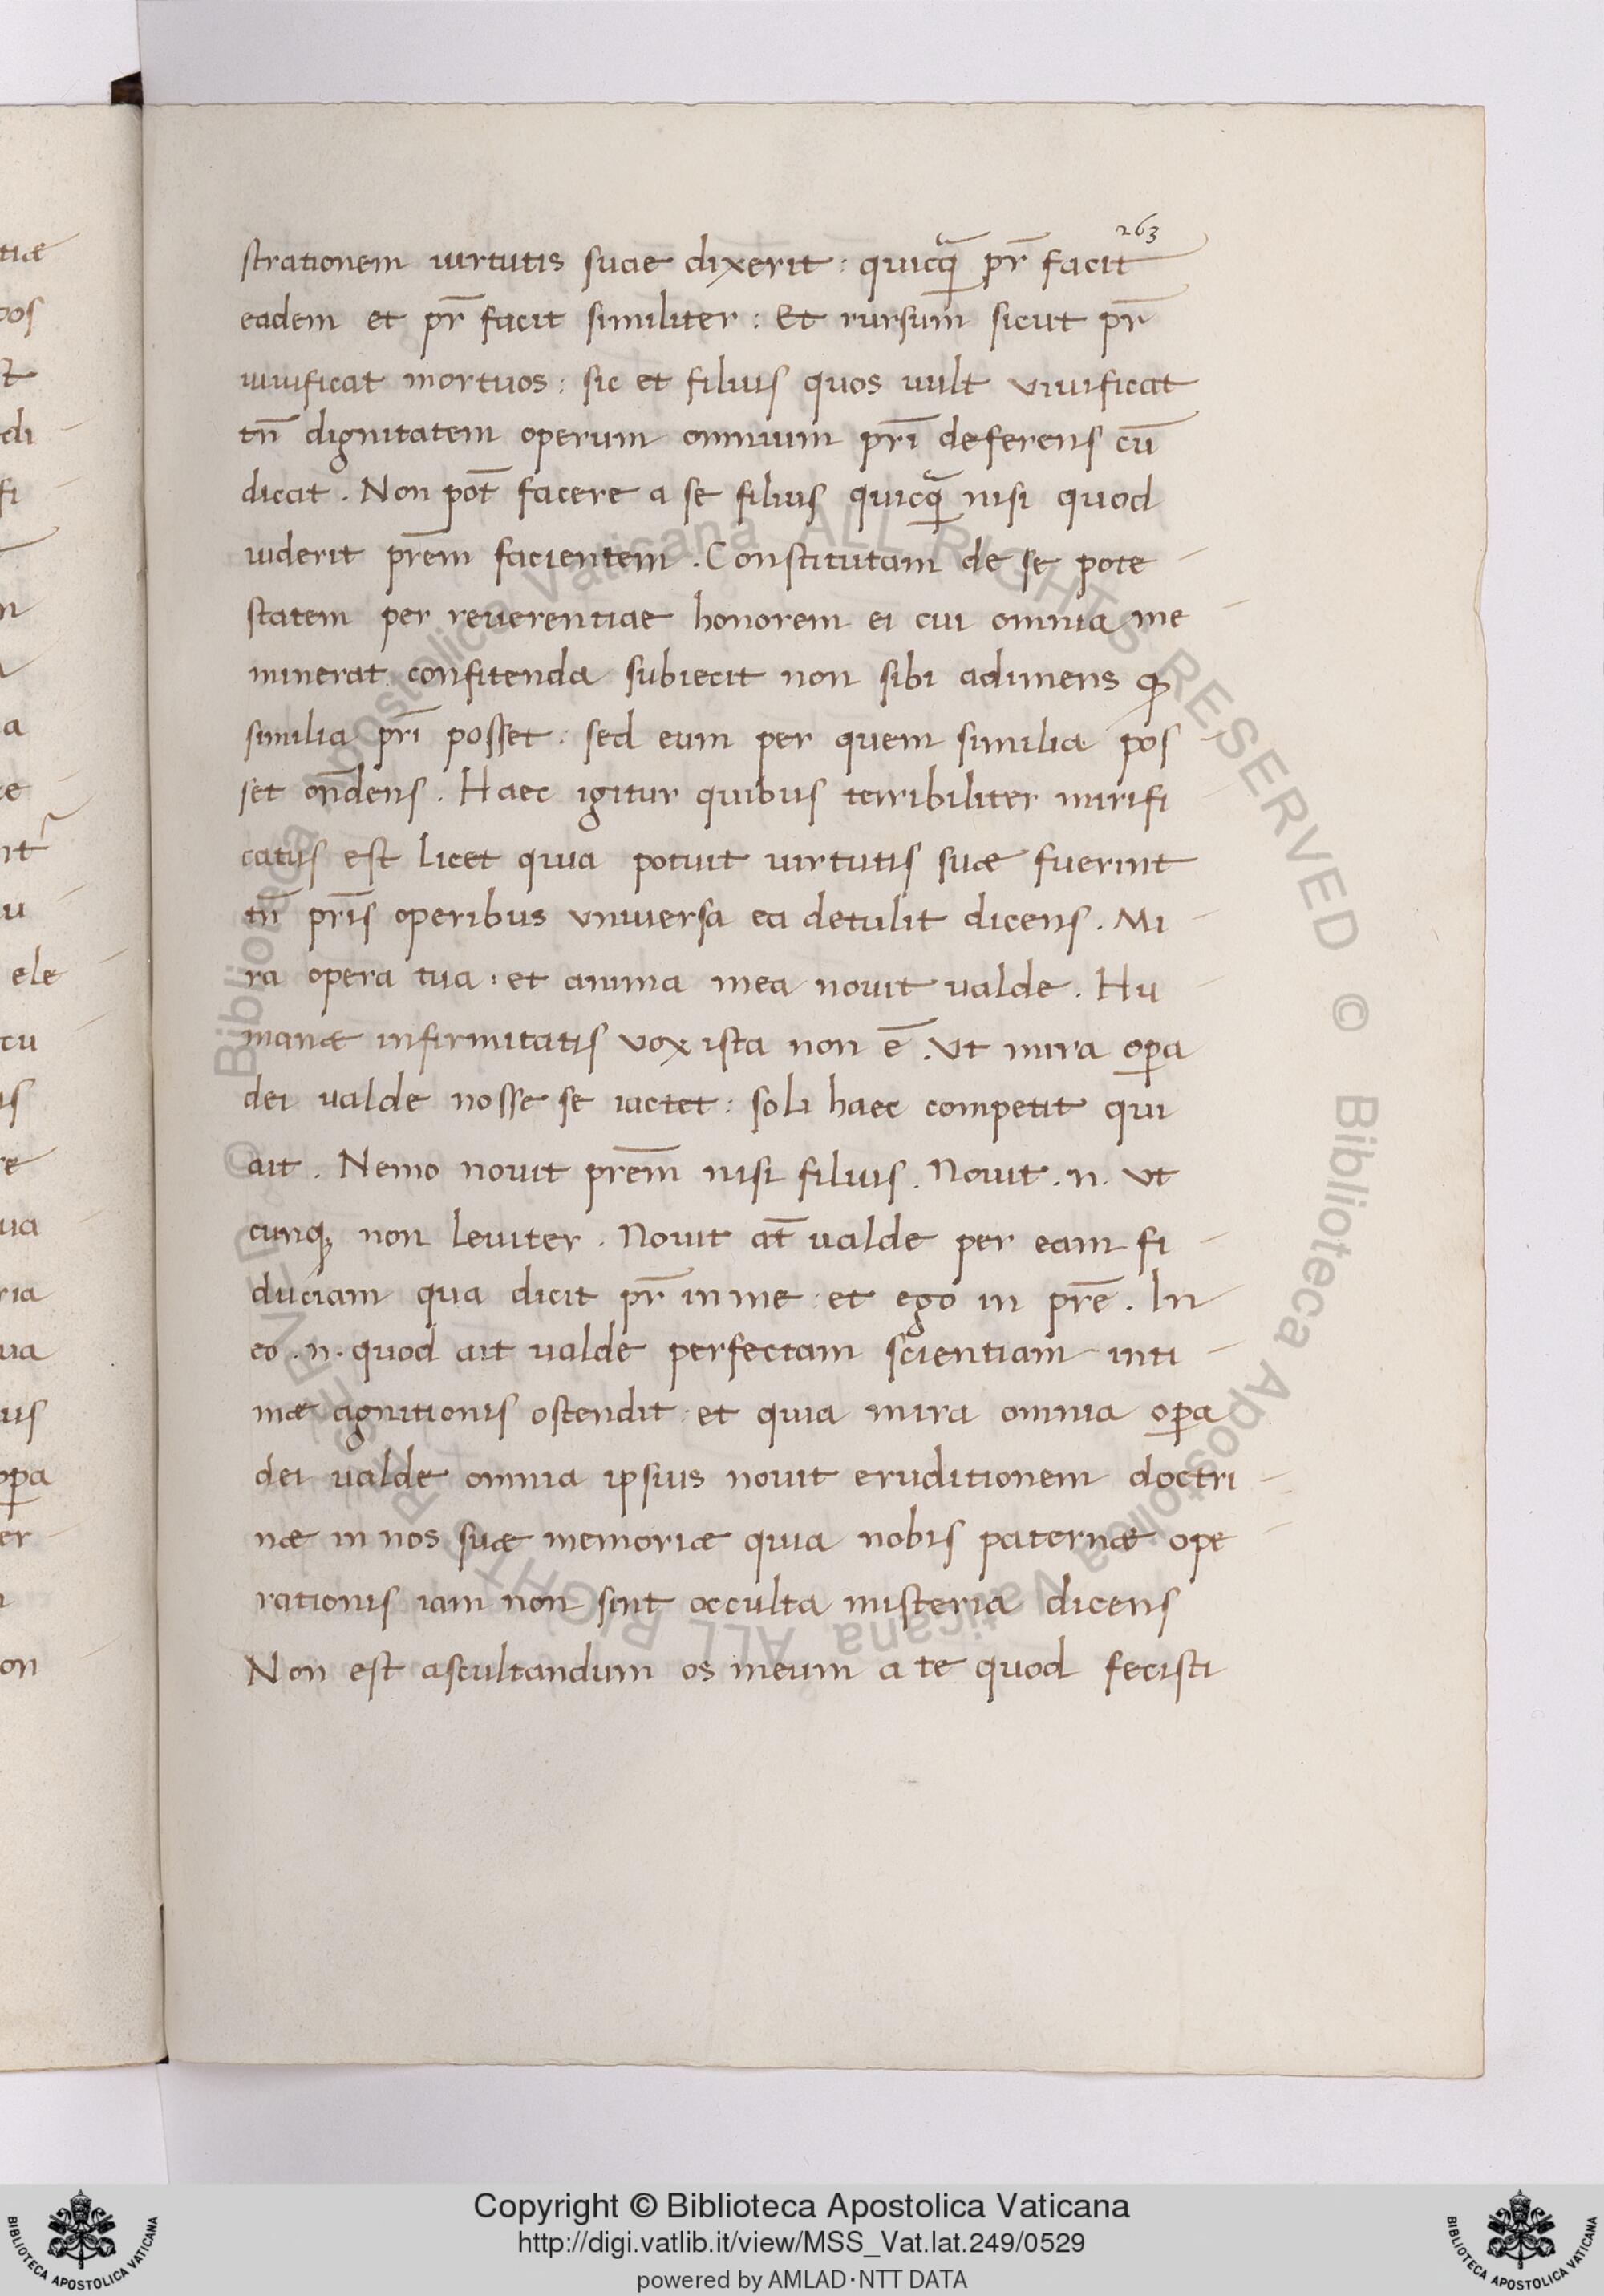 263
strationem uirtutis suae dixerit : quicq̃ pr̄ facit
eadem et pr̄ facit similiter : Et rursum sicut pr̄
uiuificat mortuos : sic et filius quos uult viuificat
tn̄ dignitatem operum omnium pr̄i deferens cū
dicat . Non pot̄ facere a se filius quicq̃ nisi quod
uiderit prēm facientem . Constitutam de se pote
statem per reuerentiae honorem ei cui omnia me
minerat confitenda subiecit non sibi adimens ꝙ
similia pr̄i posset : sed eum per quem similia pos
set on̄dens . Haec igitur quibus terribiliter mirifi
catus est licet quia potuit uirtutis suæ fuerint
tn̄ pr̄is operibus vniuersa ea detulit dicens . Mi
ra opera tua : et anima mea nouit ualde . Hu
manæ infirmitatis vox ista non ē . Vt mira oꝑa
dei ualde nosse se iactet : soli haec competit qui
ait . Nemo nouit prēm nisi filius . Nouit . n . vt
cunq; non leuiter . Nouit at̄ ualde per eam fi
duciam qua dicit pr̄ in me : et ego in prē . In
eo . n . quod ait ualde perfectam scientiam inti
mæ agnitionis ostendit : et quia mira omnia oꝑa
dei ualde omnia ipsius nouit eruditionem doctri
næ in nos suæ memoriæ quia nobis paternæ ope
rationis iam non sint occulta misteria dicens
Non est ascultandum os meum a te quod fecisti
Copyright © Biblioteca Apostolica Vaticana
http://digi.vatlib.it/view/MSS_Vat.lat.249/0529
powered by AMLAD·NTT DATA